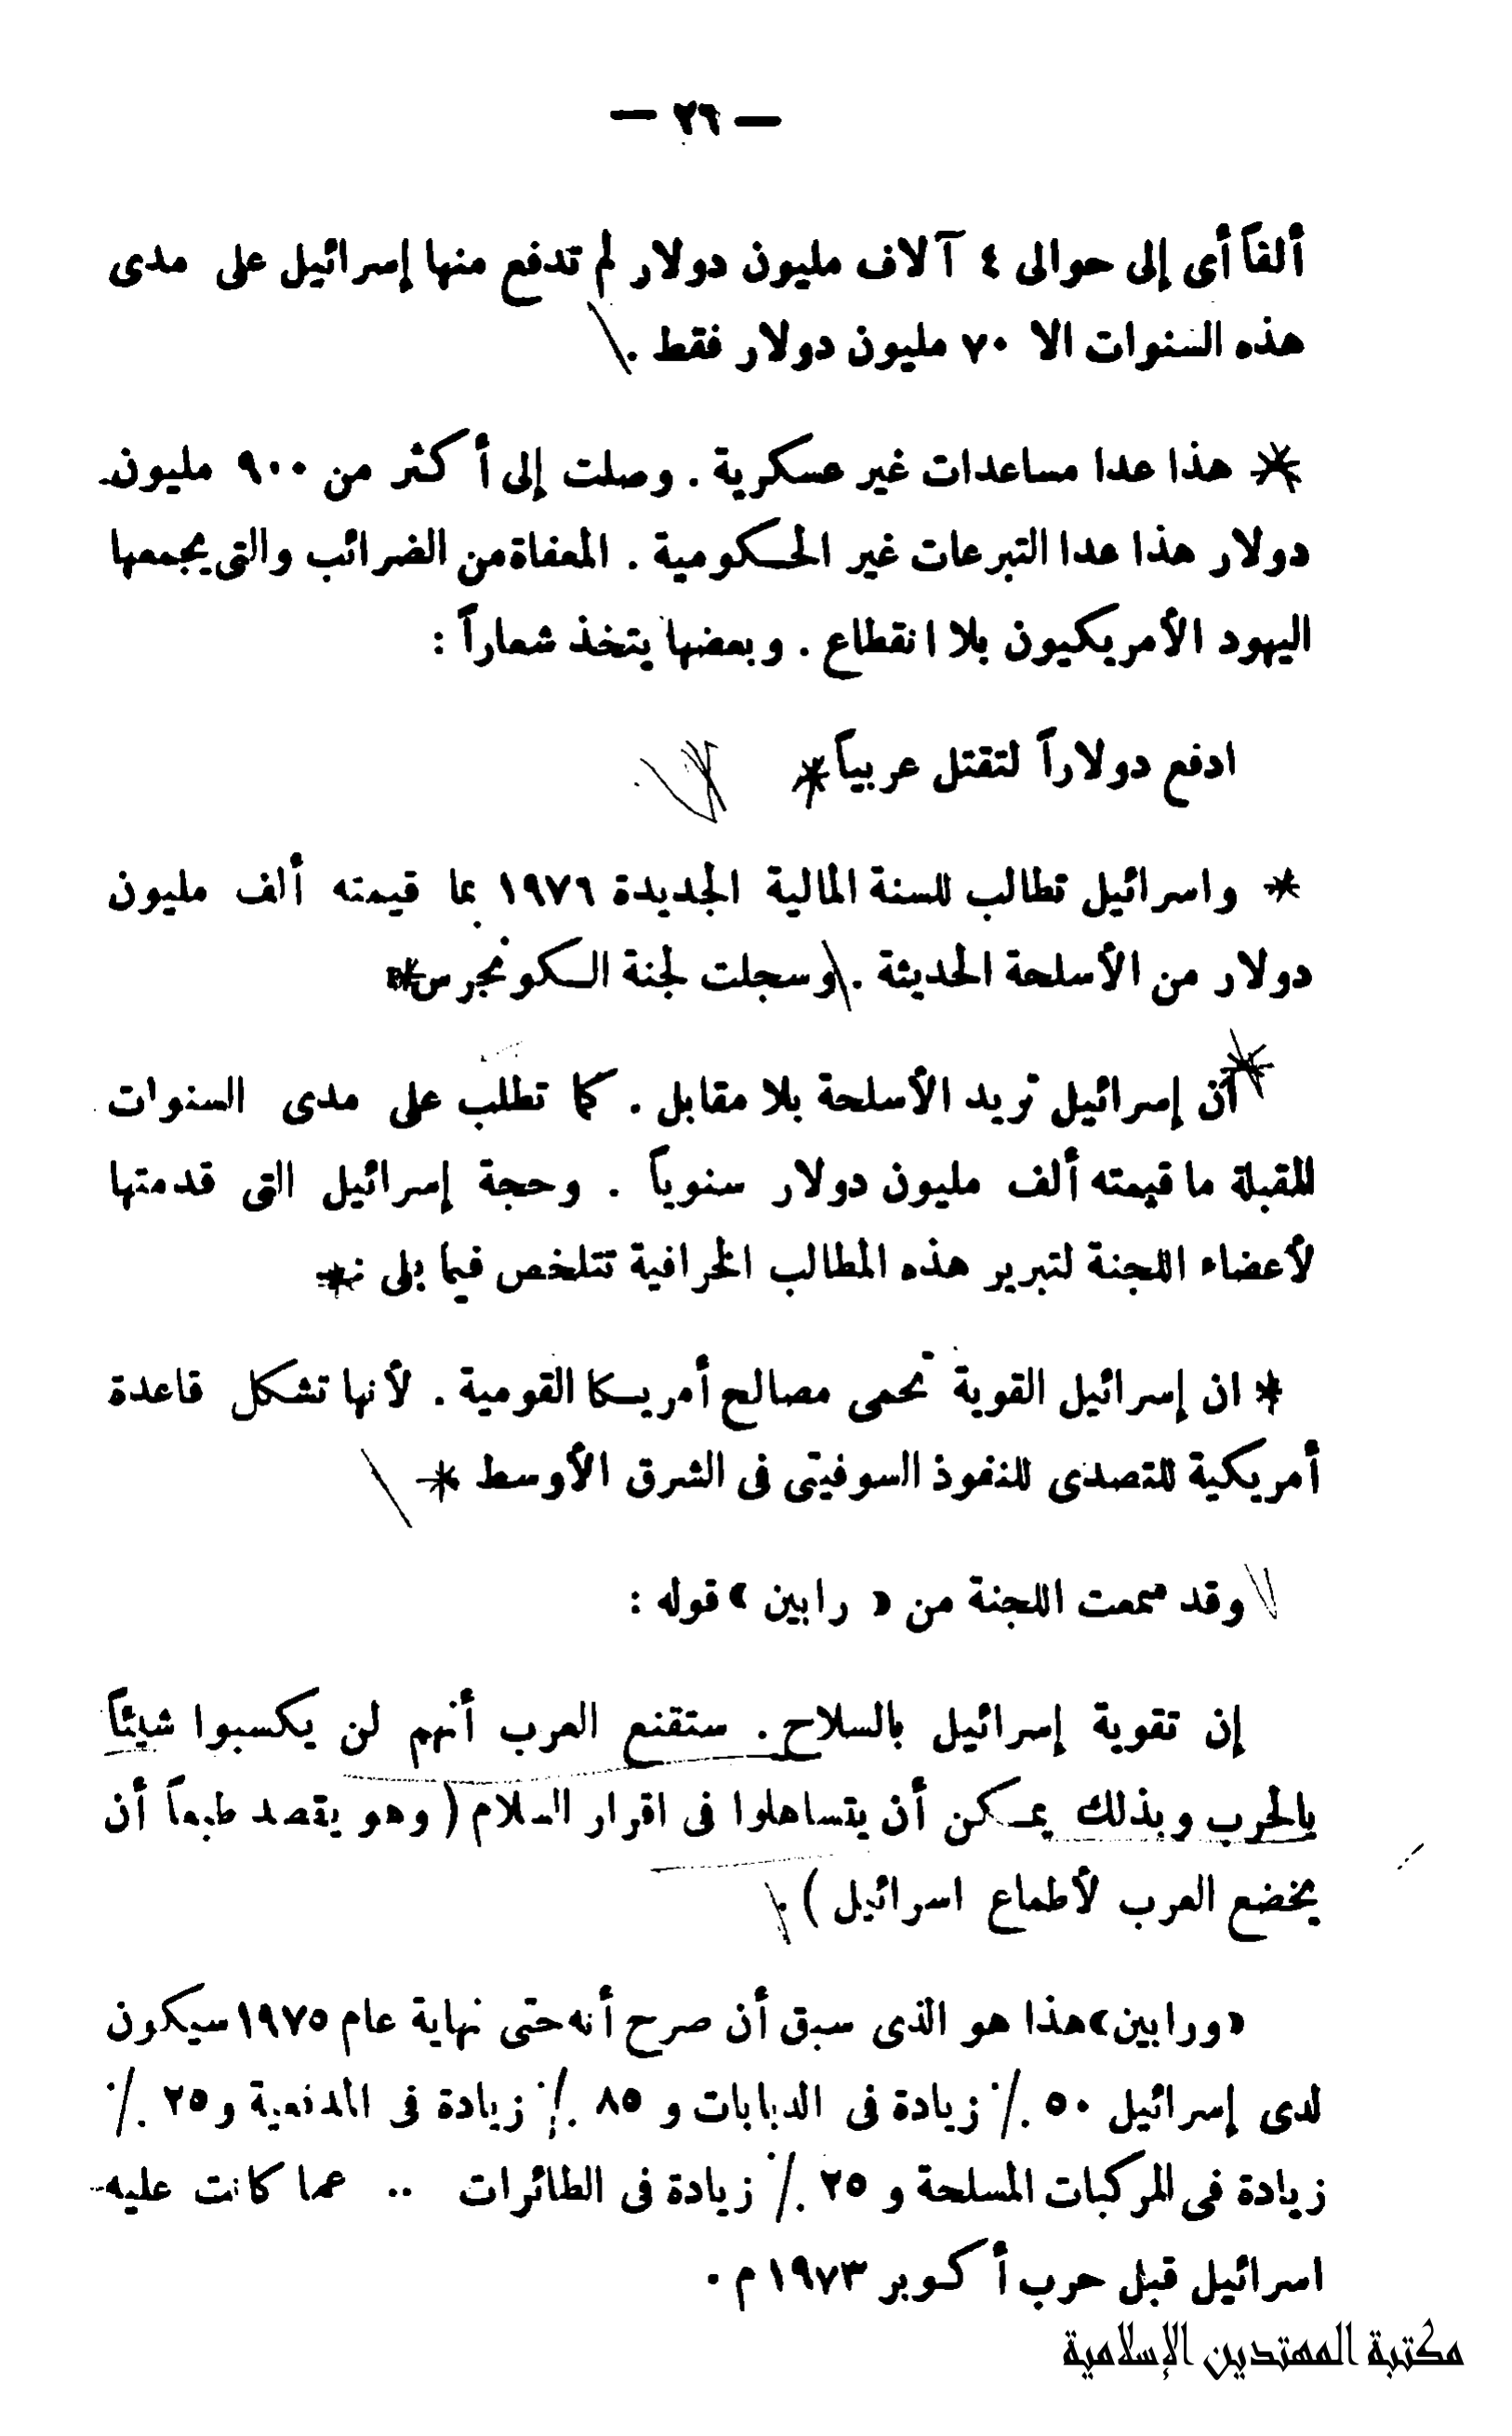 — ٢٦ —
ألفاً أى إلى حوالى ٤ آلاف مليون دولار لم تدفع منها إسرائيل على مدى
هذه السنوات الا ٧٠ مليون دولار فقط .
* هذا عدا مساعدات غير عسكرية . وصلت إلى أكثر من ٩٠٠ مليون
دولار هذا عدا التبرعات غير الحكومية . المعفاة من الضرائب والتى يجمعها
اليهود الأمريكيون بلا انقطاع . وبعضها يتخذ شعاراً :
ادفع دولاراً لتقتل عربياً *
* واسرائيل تطالب للسنة المالية الجديدة ١٩٧٦ بما قيمته ألف مليون
دولار من الأسلحة الحديثة . وسجلت لجنة الكونجرس *
أن إسرائيل تريد الأسلحة بلا مقابل . كما تطلب على مدى السنوات
المقبلة ما قيمته ألف مليون دولار سنوياً . وحجة إسرائيل التى قدمتها
لأعضاء اللجنة لتبرير هذه المطالب الخرافية تتلخص فيما يلى : *
* ان إسرائيل القوية تحمى مصالح أمريكا القومية . لأنها تشكل قاعدة
أمريكية للتصدى للنفوذ السوفيتى فى الشرق الأوسط *
وقد سمعت اللجنة من « رابين » قوله :
إن تقوية إسرائيل بالسلاح . ستقنع العرب أنهم لن يكسبوا شيئاً
بالحرب وبذلك يمكن أن يتساهلوا فى اقرار السلام ( وهو يقصد طبعاً أن
يخضع العرب لأطماع اسرائيل ) .
« ورابين » هذا هو الذى سبق أن صرح أنه حتى نهاية عام ١٩٧٥ سيكون
لدى إسرائيل ٥٠ ٪ زيادة فى الدبابات و ٨٥ ٪ زيادة فى المدفعية و ٢٥ ٪
زيادة فى المركبات المسلحة و ٢٥ ٪ زيادة فى الطائرات .. عما كانت عليه
اسرائيل قبل حرب أكوبر ١٩٧٣ م .
مكتبة المهتدين الإسلامية